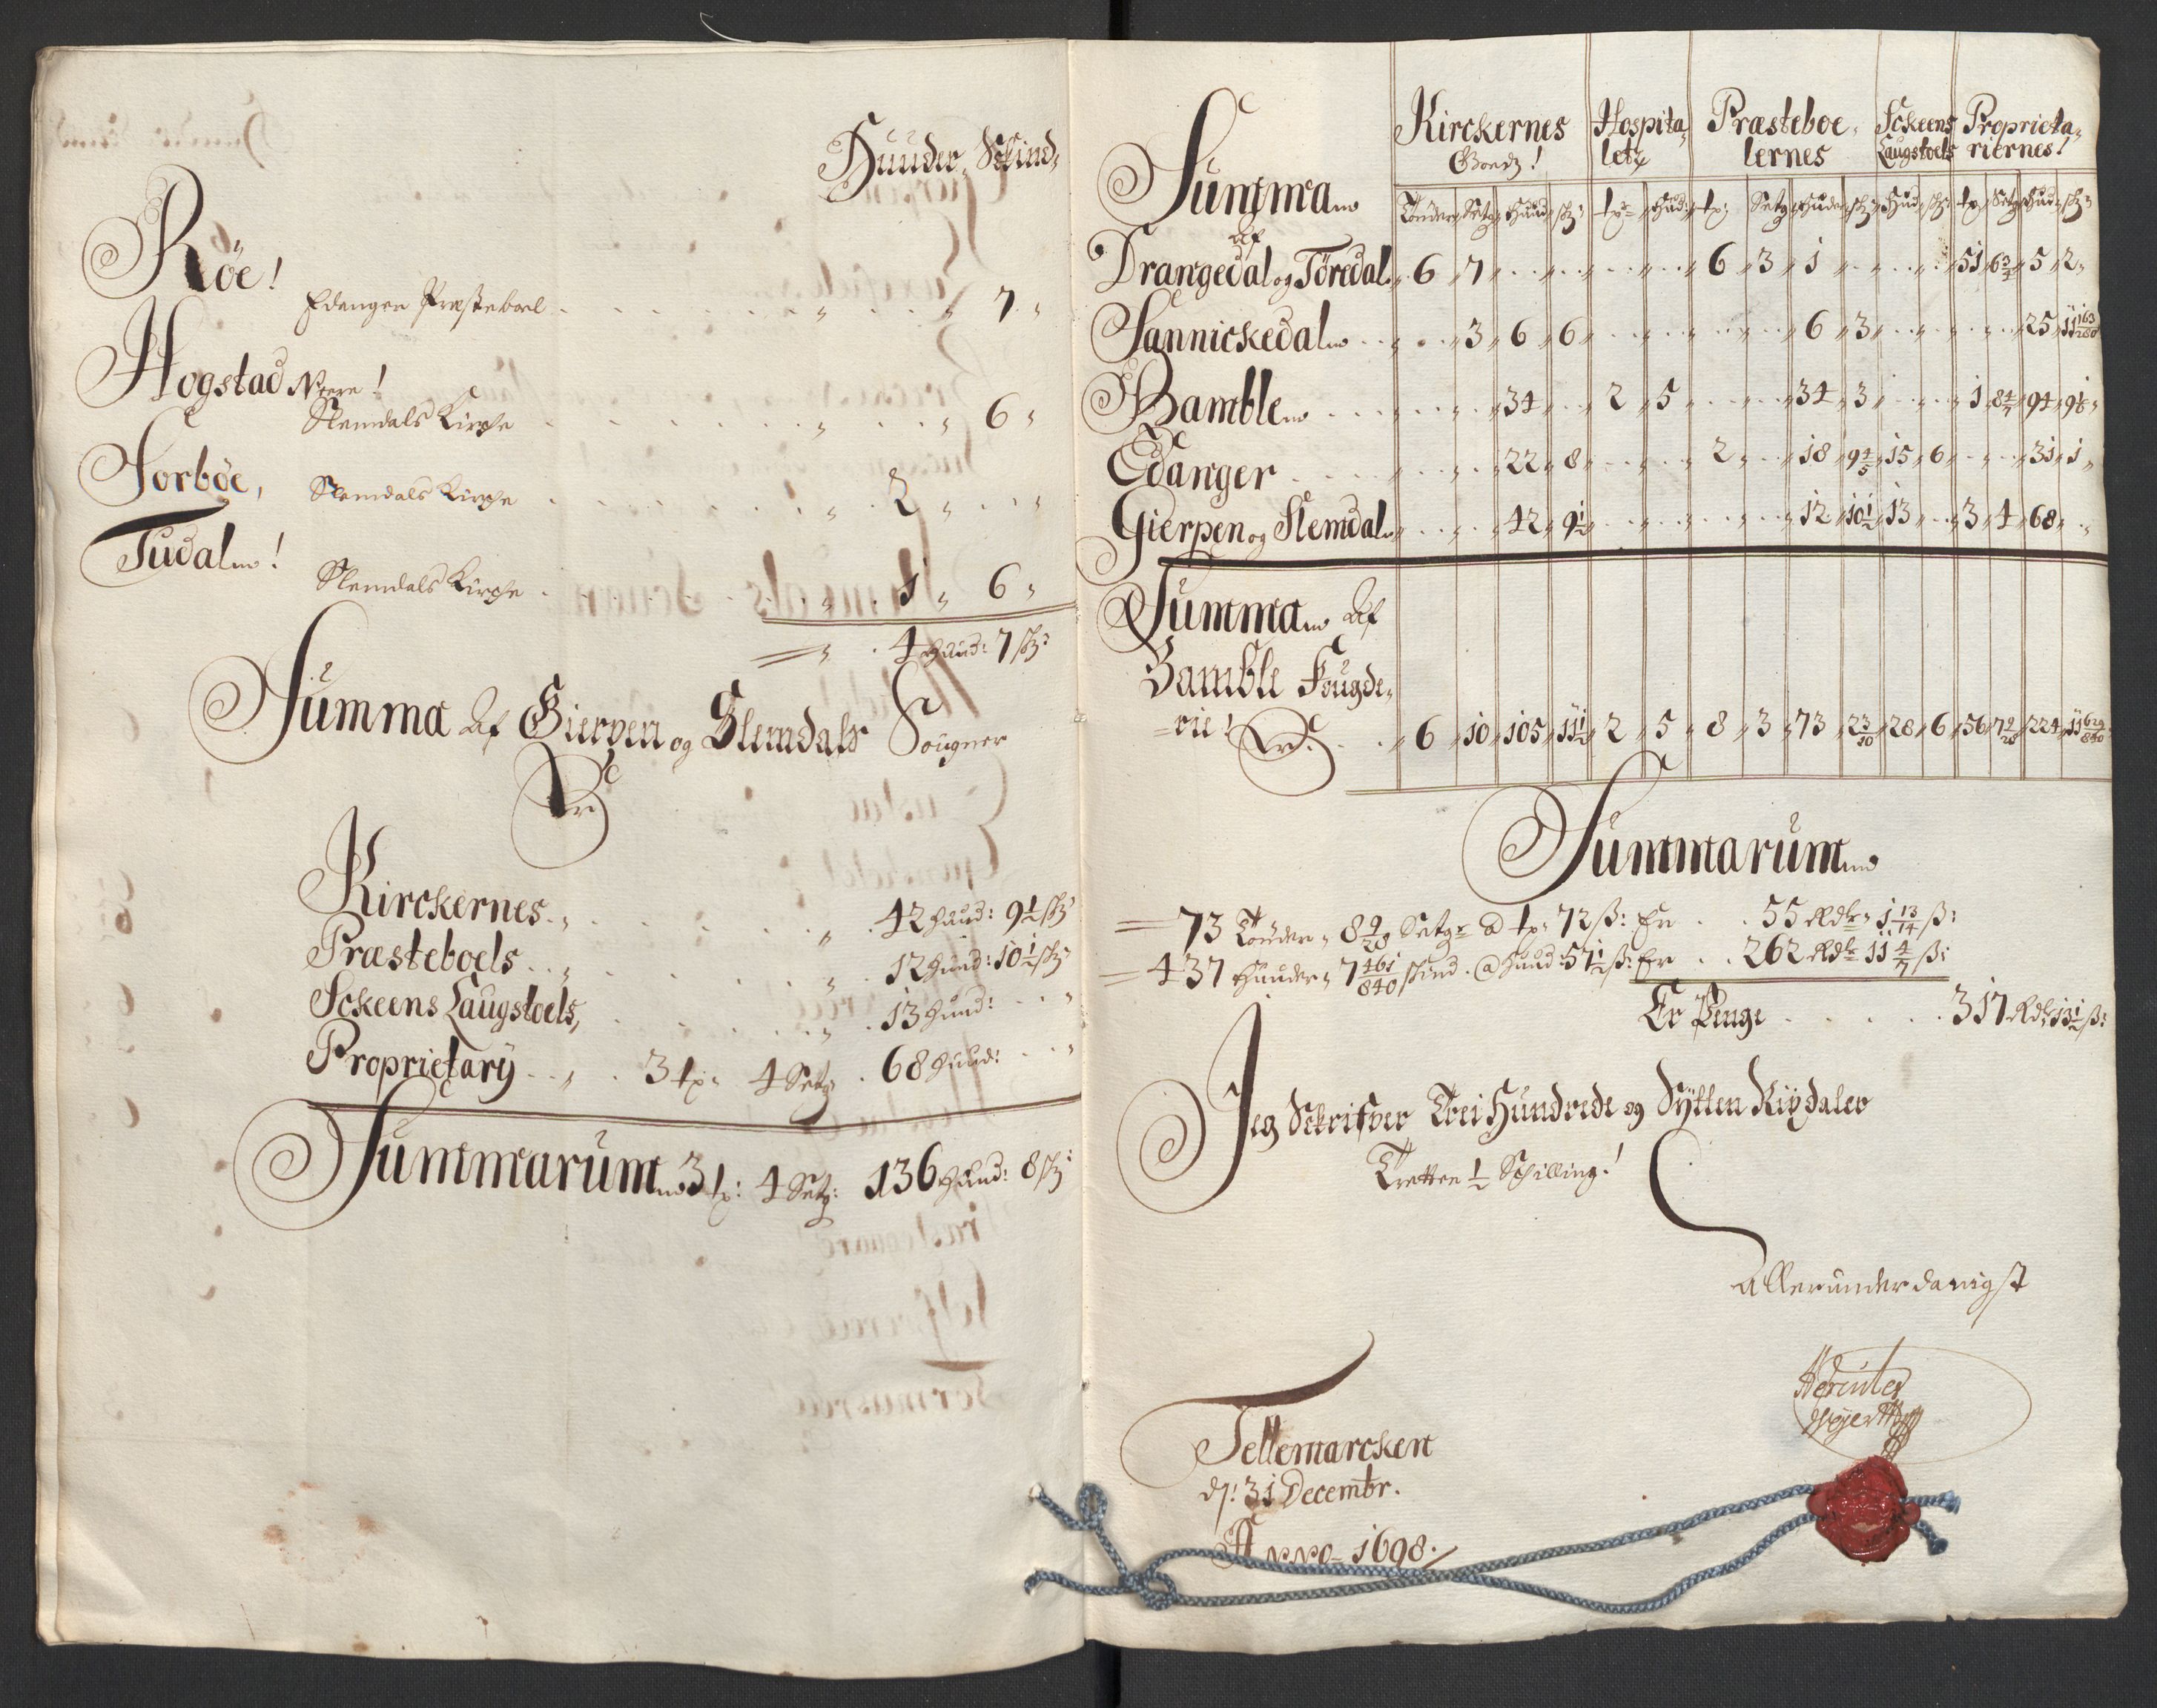 Huuder, Skind,
Röe!
Edanger Præsteboel . . . . . . . " . . " 7 "
Hogstad Neere!
Slemdals Kirche . . . . . . . " . . " 6 "
Torböe,
Slemdals Kirche . . . . . . . " . 2 " . . "
Tudal!
Slemdals Kirche . . . . . . . " . 1 " 6 "
" . 4 Huud: 7 sk:
Summa Af Gierpen og Slemdals Sougner
Er
Kirckernes . . . . . " . 42 Huud: 9½ sk:
Præsteboels . . . . . " . 12 Huud: 10½ sk:
Sckeens Laugstoels, . . . . " . 13 Huud: . . "
Proprietarÿ . . " . 3 tr: 4 Setg: . 68 Huud: . . "
Summarum 3 tr: 4 Setg: 136 Huud: 8 sk:
Summa Af | Kirckernes Goedz! | Hospitaletz | Præsteboelernes | Sckeens Laugstoels | Proprietariernes!
Tönder, Setg, Huud, sk: | tr: Hud: | tr: Setg, Huder, sk: | Hud, sk: | tr: Setg, Hud, sk:
Drangedal og Töredal 6 7 . . . . 6 3 1 . . . 51 6¾ 5 2
Sannickedal . . 3 6 6 . . . . 6 3 . . . . 25 11 163/280
Bamble . . . 34 . 2 5 . . 34 3 . . 1 8 4/7 94 9 1/6
Edanger . . . 22 8 . . 2 . 18 9 4/5 15 6 . . 31 1
Gierpen og Slemdal . . 42 9½ . . . . 12 10½ 13 . 3 4 68 .
Summa Af
Bamble Fougde-
rie! Er . . 6 10 105 11½ 2 5 8 3 73 2 3/10 28 6 56 7 9/28 224 11 629/840
Summarum
73 Tönder, 8 9/28 Setgr @ tr: 72 ß: Er . . 55 Rdlr 1 13/14 ß:
437 Huuder, 7 461/840 skind . @ Huud: 57½ ß: Er . . 262 Rdlr 11 4/7 ß:
Er Penge . . . . . 317 Rdlr 13½ ß:
Jeg Sckrifver Trei Hundrede og Sÿtten Rixdaler
Tretten ½ Schilling!
Allerunderdanigst
Tellemarcken
d: 31 Decembr.
Anno 1698.